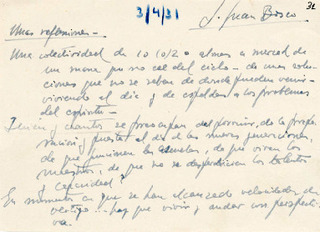 3/4/31
J. Juan Bosco
Unas reflexiones.-
Una colectividad de 10 o 20 almas a merced de
un mana que no cae del cielo - de unas
ciones que no se saben de donde pueden venir -
viviendo al día y de espaldas a los problemas
del espíritu -
se preocupan del porvenir, de la
ración y puesta al día de las nuevas generaciones,
de que funcionen las escuelas, de que vivan los
maestros, de que no se desperdicien los talentos
y capacidad?
En momentos en que se han alcanzado velocidades de
vértigo... hay que vivir y andar con perspecti-
va.